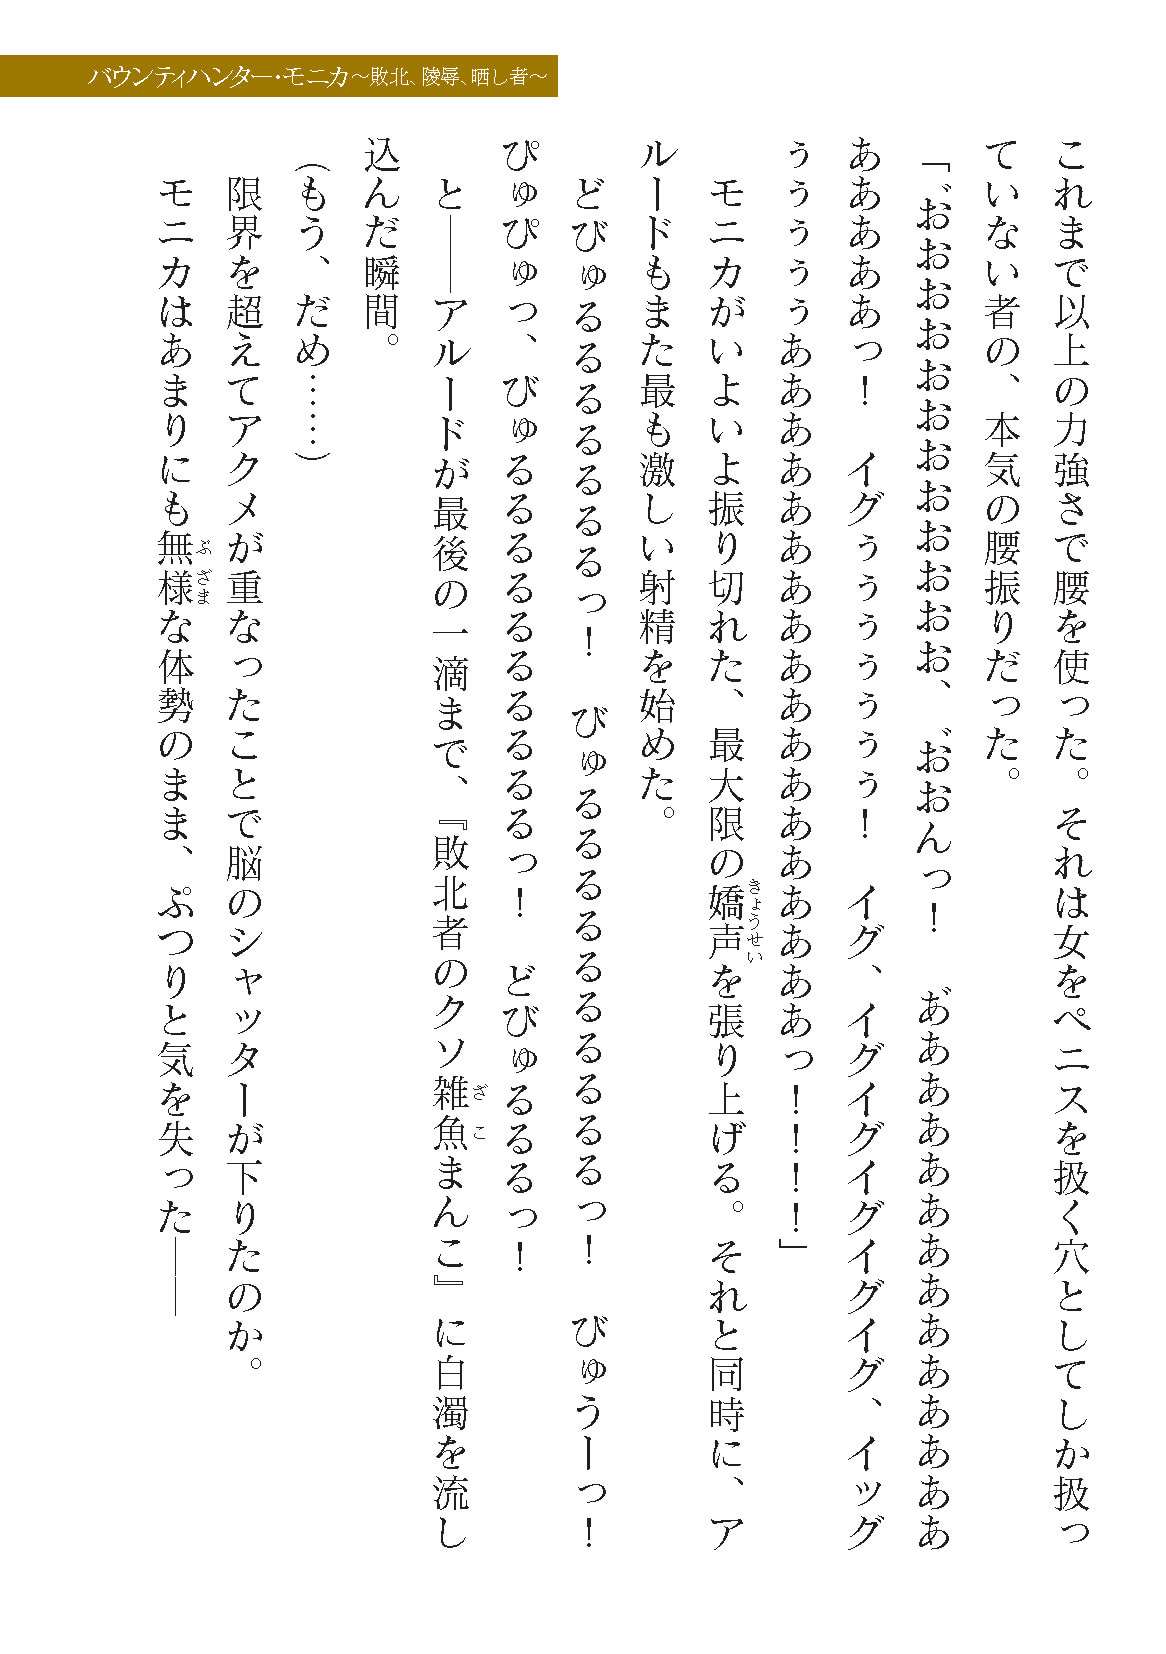 バウンティハンター・モニカ～敗北、陵辱、晒し者～
これまで以上の力強さで腰を使った。それは女をペニスを扱く穴としてしか扱っ
ていない者の、本気の腰振りだった。
「お゙おおおおおおおおおおお、お゙おんっ！　あ゙あああああああああああああ
あああああっ！　イグぅぅぅぅぅぅぅ！　イグ、イグイグイグイグイグ、イッグ
ぅぅぅぅぅああああああああああああああああああっ！！！！」
　モニカがいよいよ振り切れた、最大限の嬌声きょうせいを張り上げる。それと同時に、ア
ルードもまた最も激しい射精を始めた。
　どびゅるるるるるるるっ！　びゅるるるるるるるるるるっ！　びゅうーっ！
ぴゅぴゅっ、びゅるるるるるるるるるるっ！　どびゅるるるっ！
　と――アルードが最後の一滴まで、『敗北者のクソ雑魚ざこまんこ』に白濁を流し
込んだ瞬間。
（もう、だめ……）
　限界を超えてアクメが重なったことで脳のシャッターが下りたのか。
　モニカはあまりにも無様ぶざまな体勢のまま、ぷつりと気を失った――